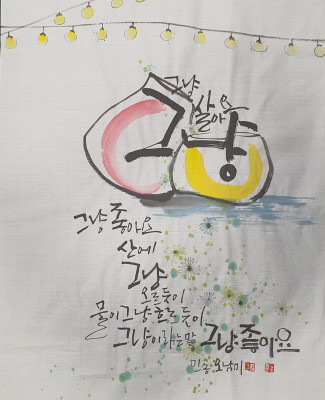 그냥
살아요
그냥
그냥 좋아요
산에
그냥
오르듯이
물이 그냥 흐르듯이
그냥이라는 말 그냥 좋아요